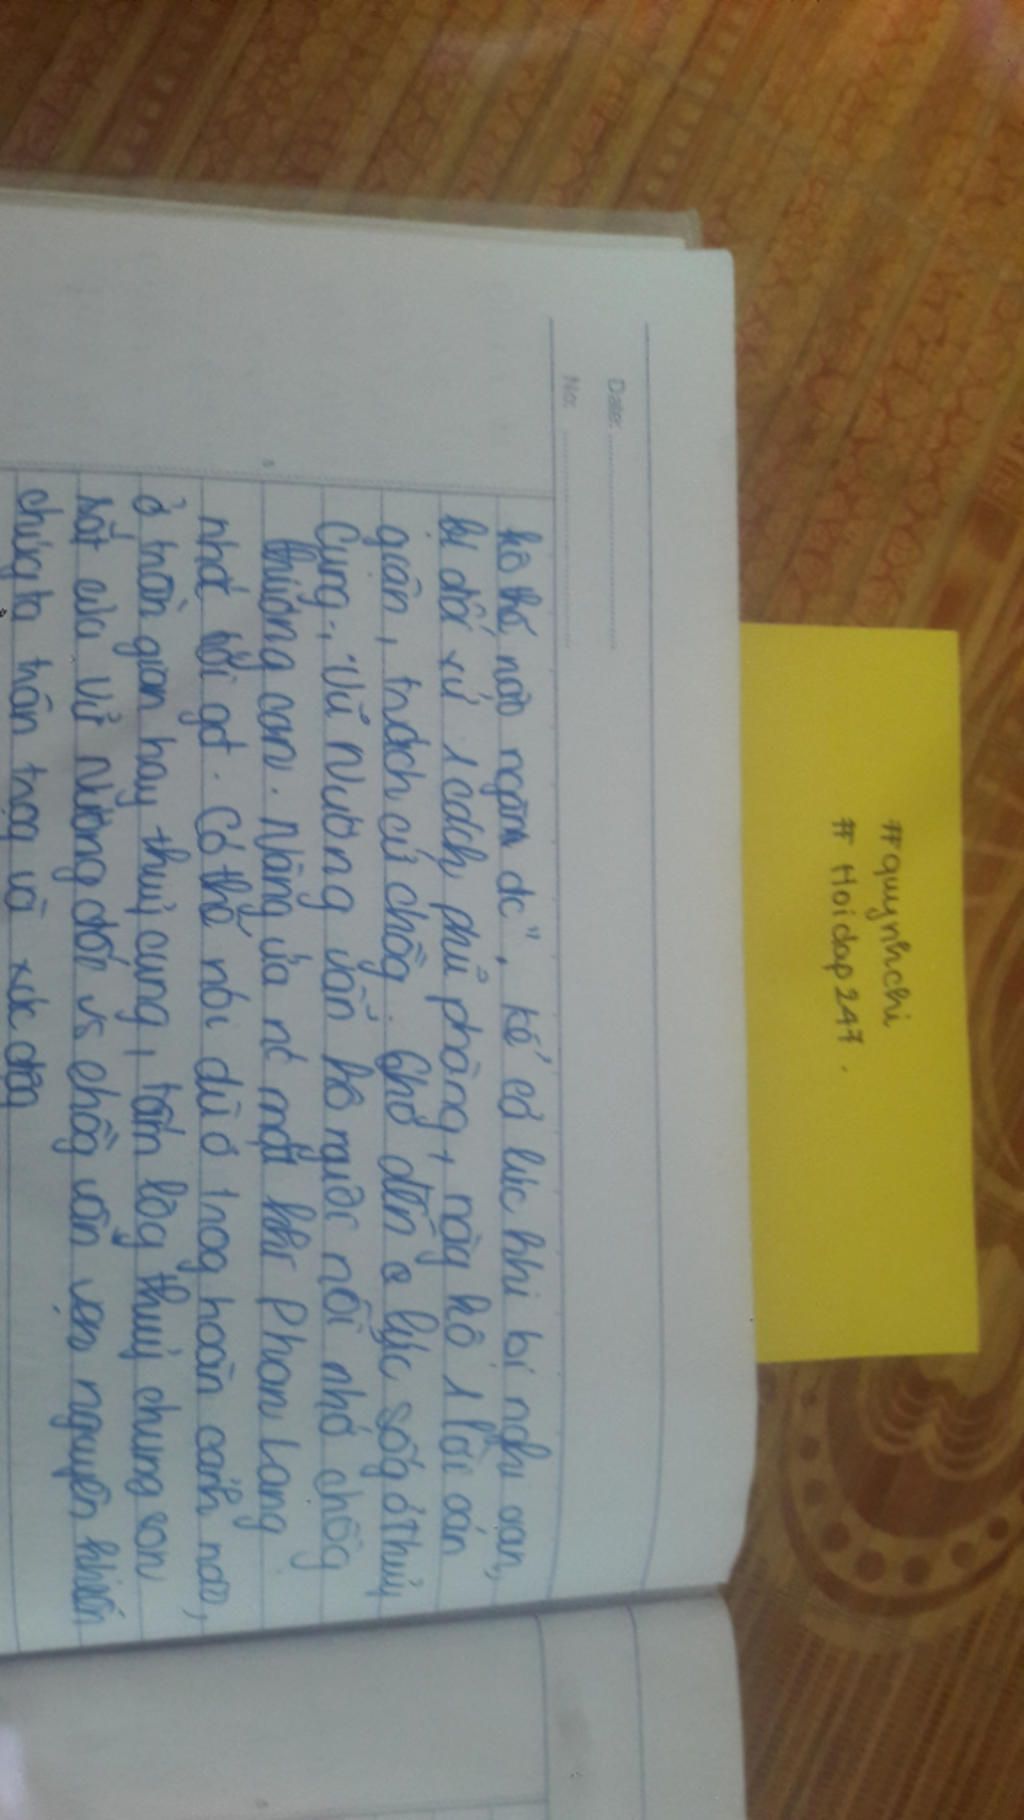 #quynhchi
# Hoidap247.
Date:
No:
kô thể nào ngăn dc", kể cả lúc khi bị nghi oan,
bị đối xử 1 cách phũ phàng, nàng kô 1 lời oán
giận, trách cứ chồg. Cho đến lúc sốg ở thuỷ
Cung, Vũ Nương vẫn kô nguôi nỗi nhớ chồg
thương con. Nàng ứa nc mắt khi Phan Lang
nhắc gợi. Có thể nói dù ở trog hoàn cảnh nào,
ở trần gian hay thuỷ cung, tấm lòg thuỷ chung son
sắt của Vũ Nương đối vs chồg vẫn vẹn nguyên khiến
chúng ta trân trọg và xúc độg